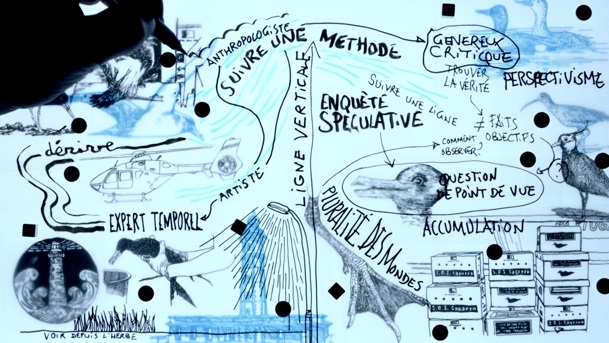 ANTHROPOLOGISTE
SUIVRE UNE METHODE
GENEREUX
CRITIQUE
TROUVER
LA VÉRITÉ
PERSPECTIVISME
SUIVRE UNE LIGNE
≠ FAITS
OBJECTIFS
COMMENT
OBSERVER?
ENQUÊTE
SPECULATIVE
LIGNE VERTICALE
dérive
ARTISTE
EXPERT TEMPOREL
QUESTION
DE POINT DE VUE
PLURALITÉ DES MONDES
ACCUMULATION
VOIR DEPUIS L'HERBE